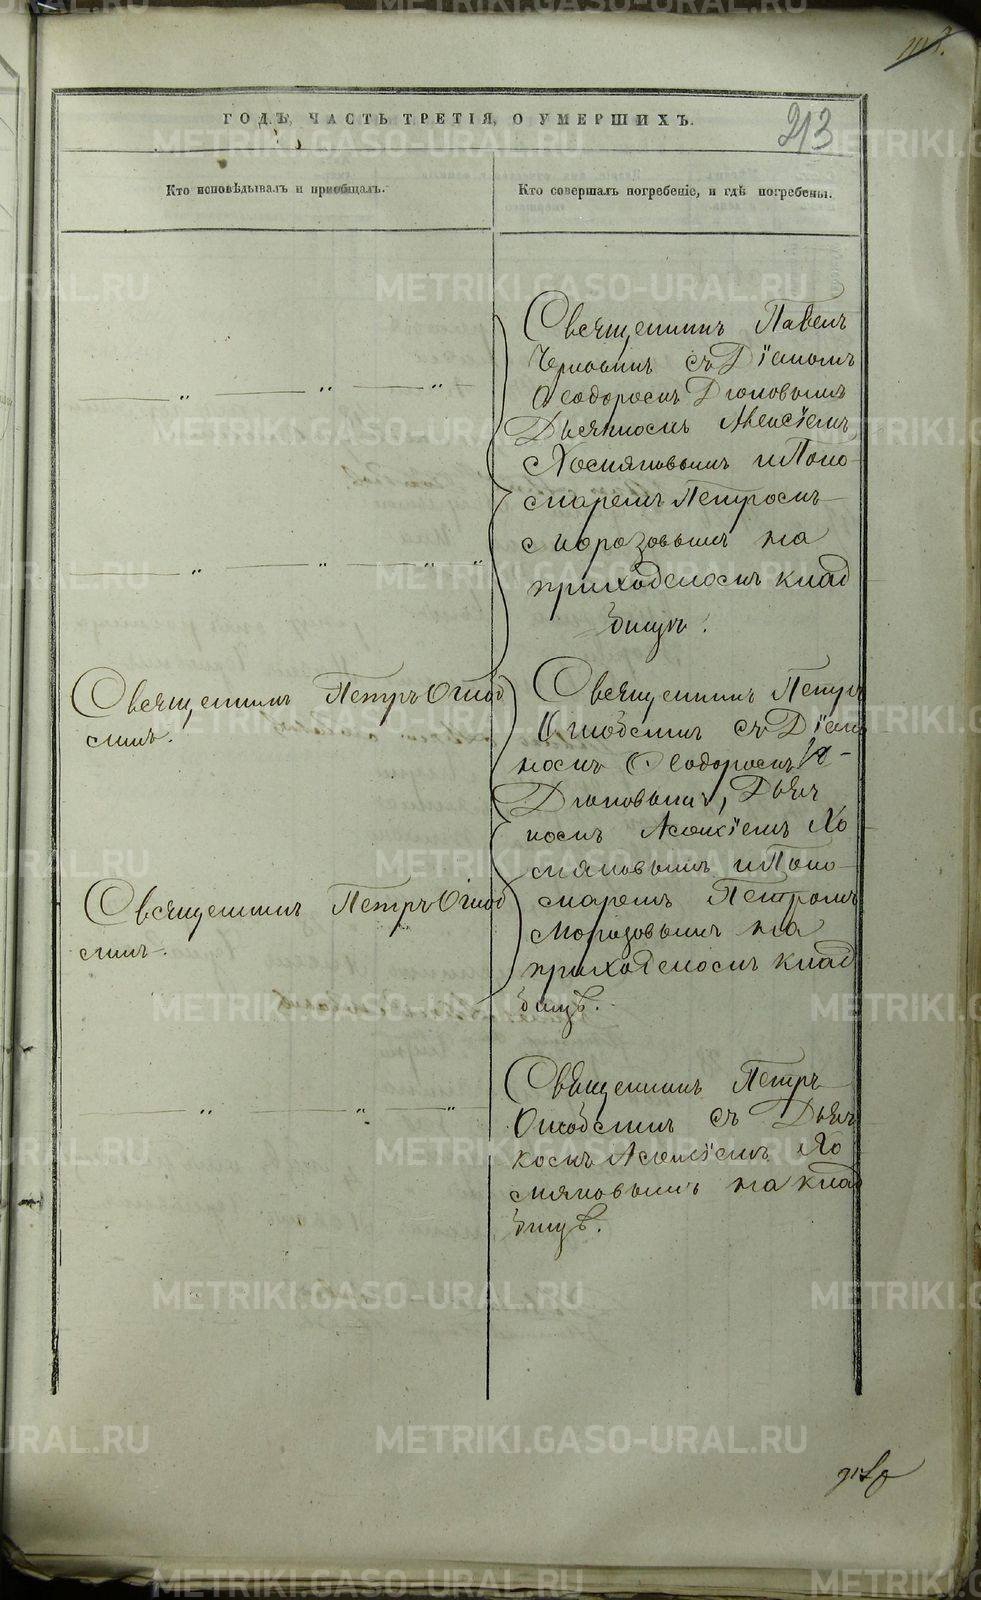 213
ГОДЪ, ЧАСТЬ ТРЕТІЯ, О УМЕРШИХЪ.
Кто исповѣдывалъ и приобщалъ.
Кто совершалъ погребеніе, и гдѣ погребены.
Священникъ Павелъ
съ Діакономъ
Ѳеодоромъ Дягиловымъ
Дьячкомъ Алексіемъ
Хосняновымъ и Поно-
маремъ Петромъ
Морозовымъ на
приходскомъ клад
бищѣ.
Священникомъ Петръ
скимъ.
Священникъ Петръ
съ Діако
номъ Ѳеодоромъ
Дьяч
комъ Алексіемъ Хо
сняновымъ и Поно-
маремъ Петромъ
Морозовымъ на
приходскомъ клад
бищѣ.
Священникомъ Петръ
скимъ.
Священникъ Петръ
съ Дьяч
комъ Алексіемъ Хо
сняновымъ на клад
бищѣ.
METRIKI.GASO-URAL.RU